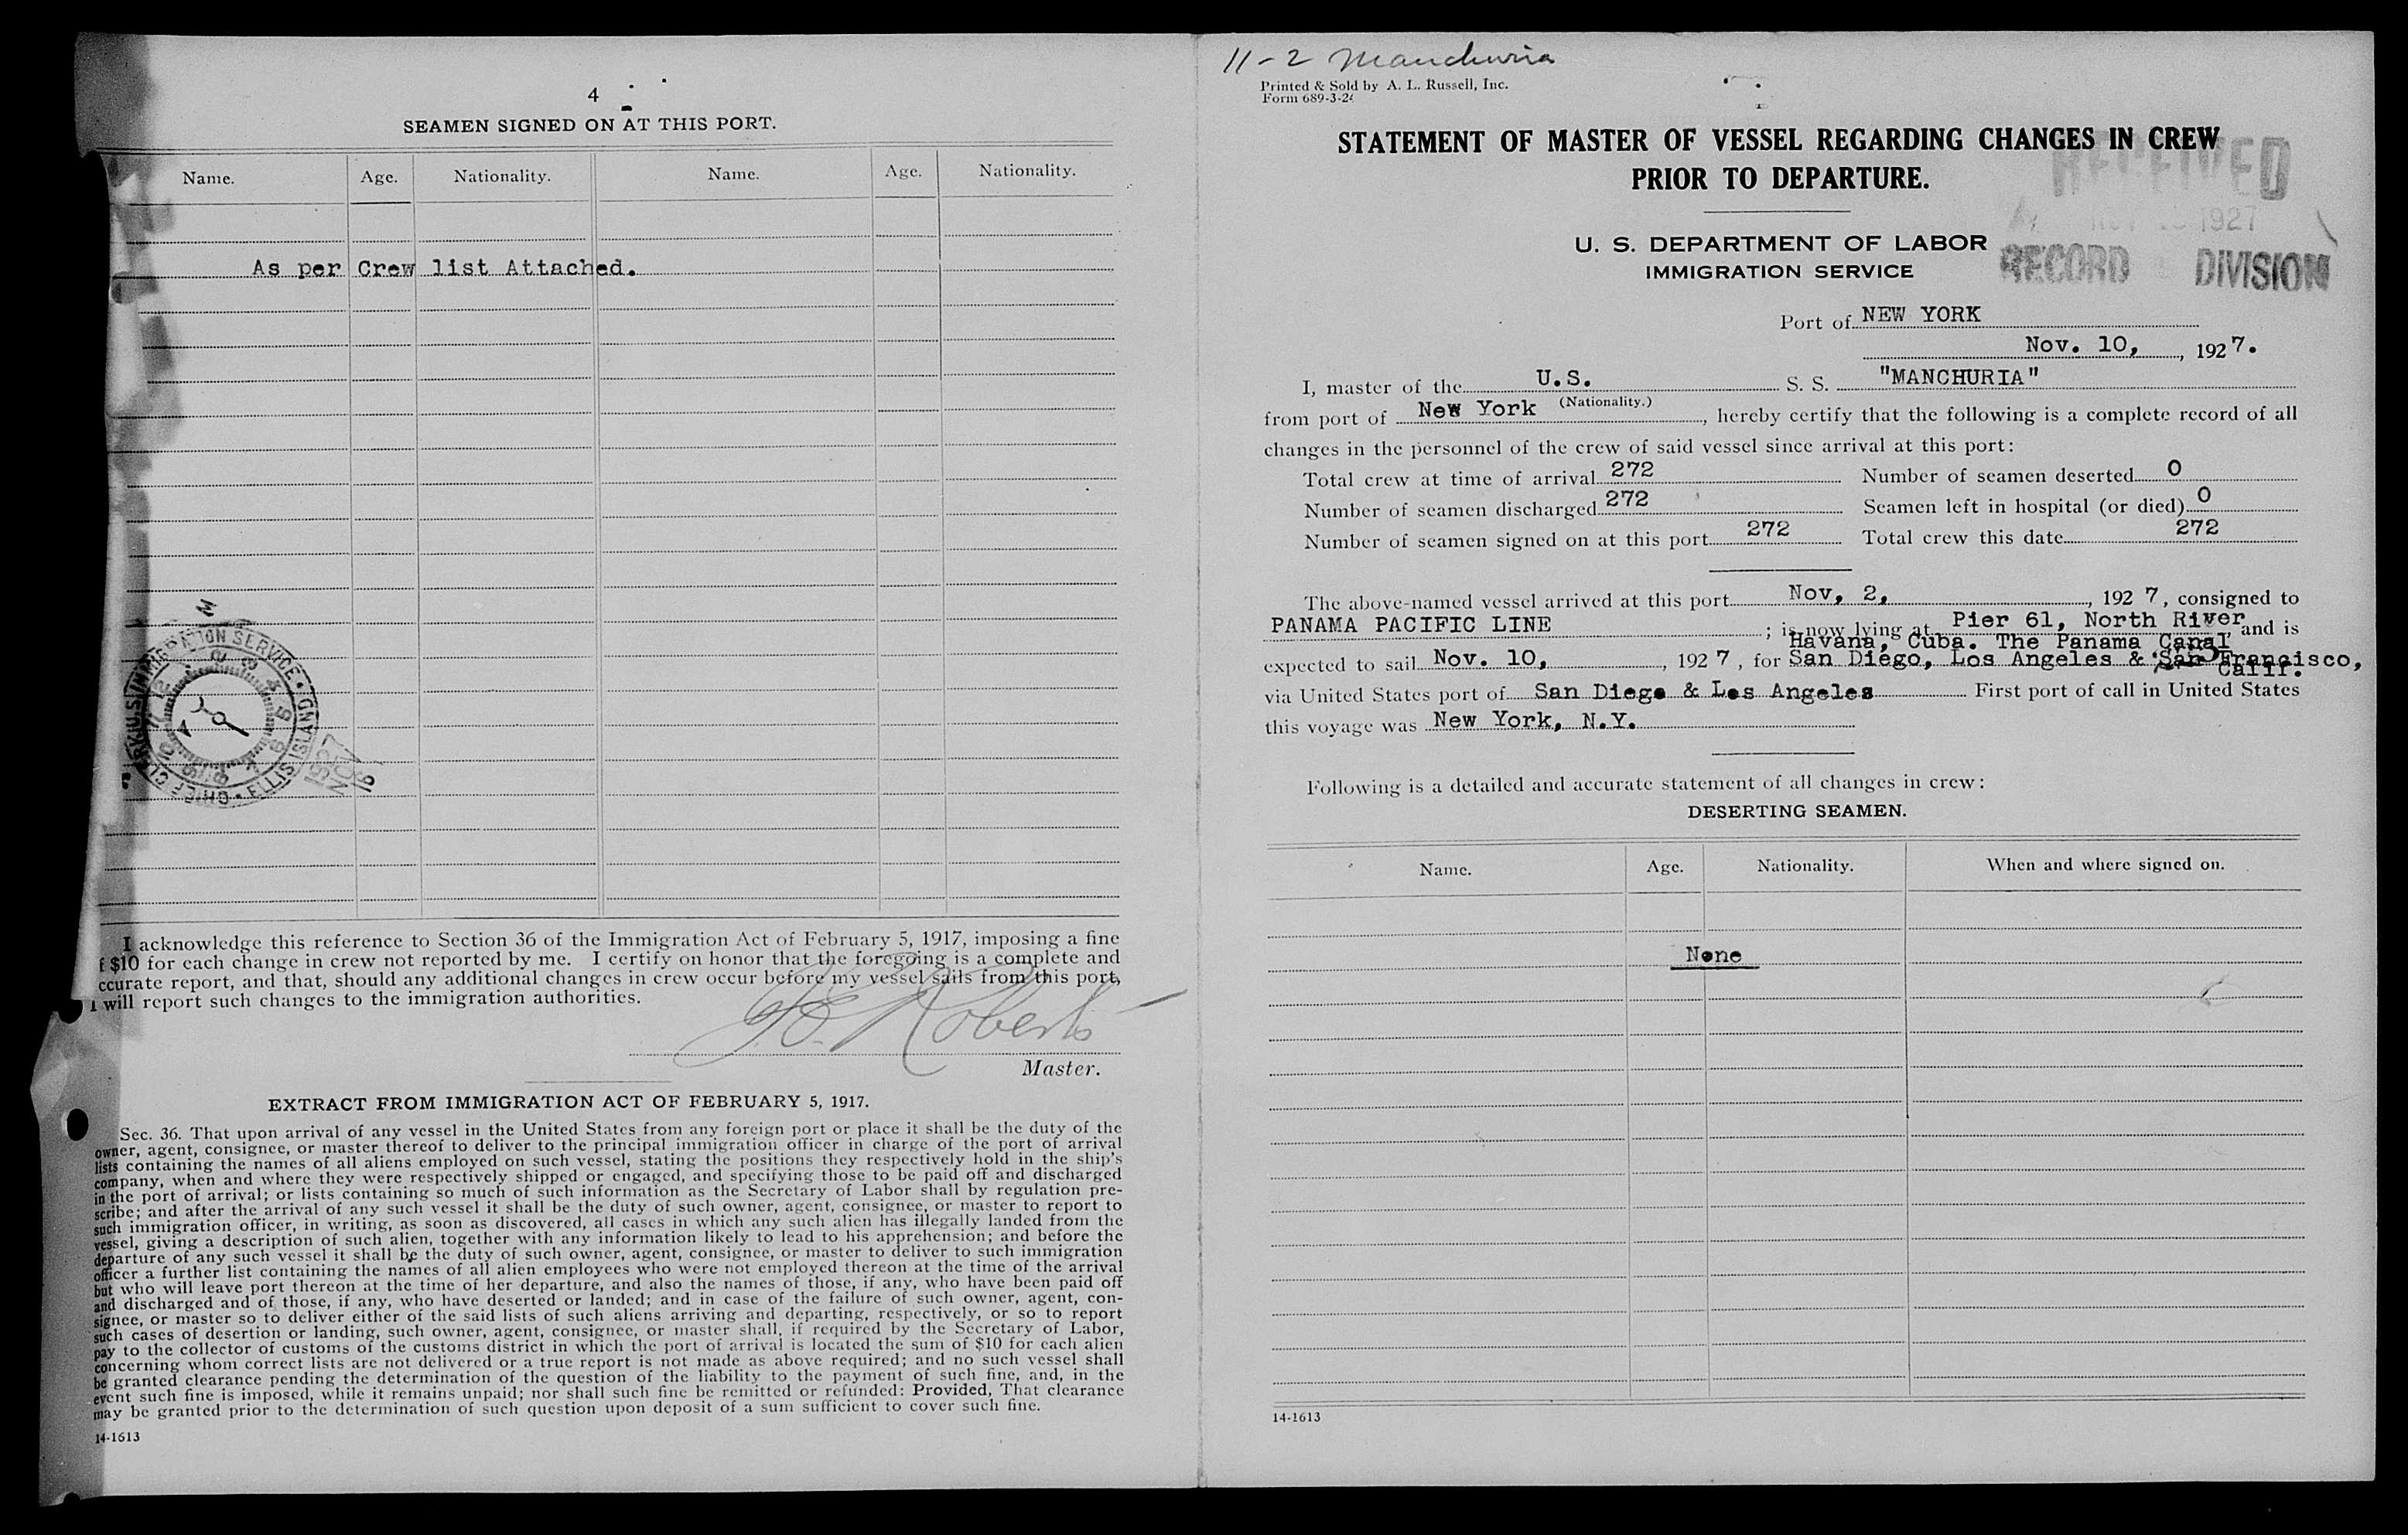 4
SEAMEN SIGNED ON AT THIS PORT.
Name. Age. Nationality. Name. Age. Nationality.
As per Crew list Attached.
U.S. IMMIGRATION SERVICE • ELLIS ISLAND • CHIEF CLERK
1927
NOV
16
I acknowledge this reference to Section 36 of the Immigration Act of February 5, 1917, imposing a fine
f $10 for each change in crew not reported by me. I certify on honor that the foregoing is a complete and
ccurate report, and that, should any additional changes in crew occur before my vessel sails from this port,
I will report such changes to the immigration authorities.
Roberts
Master.
EXTRACT FROM IMMIGRATION ACT OF FEBRUARY 5, 1917.
Sec. 36. That upon arrival of any vessel in the United States from any foreign port or place it shall be the duty of the
owner, agent, consignee, or master thereof to deliver to the principal immigration officer in charge of the port of arrival
lists containing the names of all aliens employed on such vessel, stating the positions they respectively hold in the ship's
company, when and where they were respectively shipped or engaged, and specifying those to be paid off and discharged
in the port of arrival; or lists containing so much of such information as the Secretary of Labor shall by regulation pre-
scribe; and after the arrival of any such vessel it shall be the duty of such owner, agent, consignee, or master to report to
such immigration officer, in writing, as soon as discovered, all cases in which any such alien has illegally landed from the
vessel, giving a description of such alien, together with any information likely to lead to his apprehension; and before the
departure of any such vessel it shall be the duty of such owner, agent, consignee, or master to deliver to such immigration
officer a further list containing the names of all alien employees who were not employed thereon at the time of the arrival
but who will leave port thereon at the time of her departure, and also the names of those, if any, who have been paid off
and discharged and of those, if any, who have deserted or landed; and in case of the failure of such owner, agent, con-
signee, or master so to deliver either of the said lists of such aliens arriving and departing, respectively, or so to report
such cases of desertion or landing, such owner, agent, consignee, or master shall, if required by the Secretary of Labor,
pay to the collector of customs of the customs district in which the port of arrival is located the sum of $10 for each alien
concerning whom correct lists are not delivered or a true report is not made as above required; and no such vessel shall
be granted clearance pending the determination of the question of the liability to the payment of such fine, and, in the
event such fine is imposed, while it remains unpaid; nor shall such fine be remitted or refunded: Provided, That clearance
may be granted prior to the determination of such question upon deposit of a sum sufficient to cover such fine.
14-1613
11-2 Manchuria
Printed & Sold by A. L. Russell, Inc.
Form 689-3-24
STATEMENT OF MASTER OF VESSEL REGARDING CHANGES IN CREW
PRIOR TO DEPARTURE.
RECEIVED
1927
RECORD DIVISION
U. S. DEPARTMENT OF LABOR
IMMIGRATION SERVICE
Port of NEW YORK
Nov. 10, , 1927.
I, master of the U.S. S. S. "MANCHURIA"
(Nationality.)
from port of New York, hereby certify that the following is a complete record of all
changes in the personnel of the crew of said vessel since arrival at this port:
Total crew at time of arrival 272 Number of seamen deserted 0
Number of seamen discharged 272 Seamen left in hospital (or died) 0
Number of seamen signed on at this port 272 Total crew this date 272
The above-named vessel arrived at this port Nov, 2, , 1927, consigned to
PANAMA PACIFIC LINE ; is now lying at Pier 61, North River and is
Havana, Cuba. The Panama Canal
expected to sail Nov. 10, , 1927, for San Diego, Los Angeles & San Francisco,
Calif.
via United States port of San Diego & Los Angeles First port of call in United States
this voyage was New York, N.Y.
Following is a detailed and accurate statement of all changes in crew:
DESERTING SEAMEN.
Name. Age. Nationality. When and where signed on.
None
14-1613